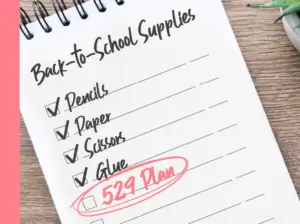 Back-to-School Supplies
Pencils
Paper
Scissors
Glue
529 Plan